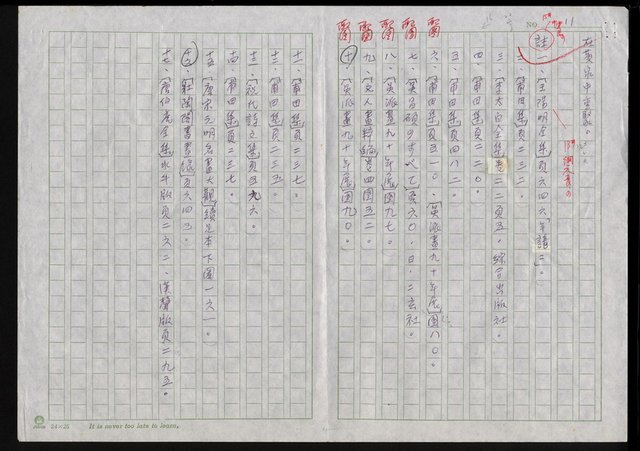 NO. 11
在黃泉中來豎。
註一、〔王陽明全集〕頁六四六「年譜」。
二、〔莆田集〕頁二三二。
三、〔李太白全集〕卷二二頁五。綜合出版社。
四、〔莆田集〕頁二二〇。
五、〔莆田集〕頁四八二。
六、〔莆田集〕頁五一〇。〔吳派畫九十年展〕圖八〇。
七、頁六〇，日．二玄社。
八、〔吳派畫九十年展〕圖九七。
九、〔文人畫粹編〕卷四圖五二。
十、〔吳派畫九十年展〕圖九〇。
十一、〔莆田集〕頁二三七。
十二、〔莆田集〕頁二三五。
十三、〔祝氏詩文集〕頁五九六。
十四、〔莆田集〕頁二三七。
十五、〔唐宋元明名畫大觀〕續足本下圖一六一。
十六、〔壯陶閣書畫錄〕頁六四三。
十七、〔唐伯虎全集〕水牛版頁二六二、漢聲版頁二九五。
24×25 It is never too late to learn.